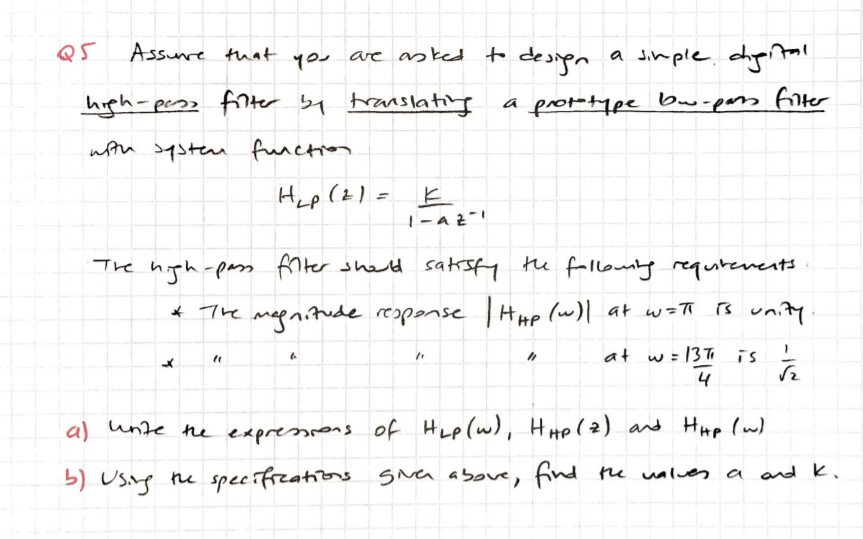 Q5 Assume that you are asked to design a simple digital
high-pass filter by translating a prototype low-pass filter
with system function
H_LP(z) = K / (1 - a z^-1)
The high-pass filter should satisfy the following requirements.
* The magnitude response |H_HP(w)| at w=π is unity.
* " " " " at w = 13π/4 is 1/√2
a) Write the expressions of H_LP(w), H_HP(z) and H_HP(w)
b) Using the specifications given above, find the values a and K.